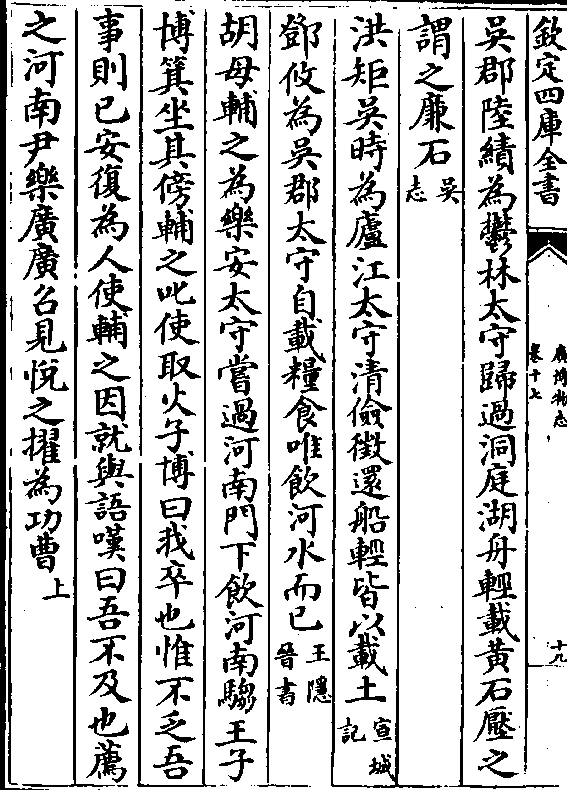 欽定四庫全書
廣博物志
卷十七
十九
吳郡陸績為鬱林太守歸過洞庭湖舟輕載黃石壓之
謂之廉石吳志
洪矩吳時為廬江太守清儉徵還船輕皆以載土宣城記
鄧攸為吳郡太守自載糧食唯飲河水而已王隱晉書
胡母輔之為樂安太守嘗過河南門下飲河南騶王子
博箕坐其傍輔之叱使取火子博曰我卒也惟不乏吾
事則已安復為人使輔之因就與語嘆曰吾不及也薦
之河南尹樂廣廣召見悅之擢為功曹上